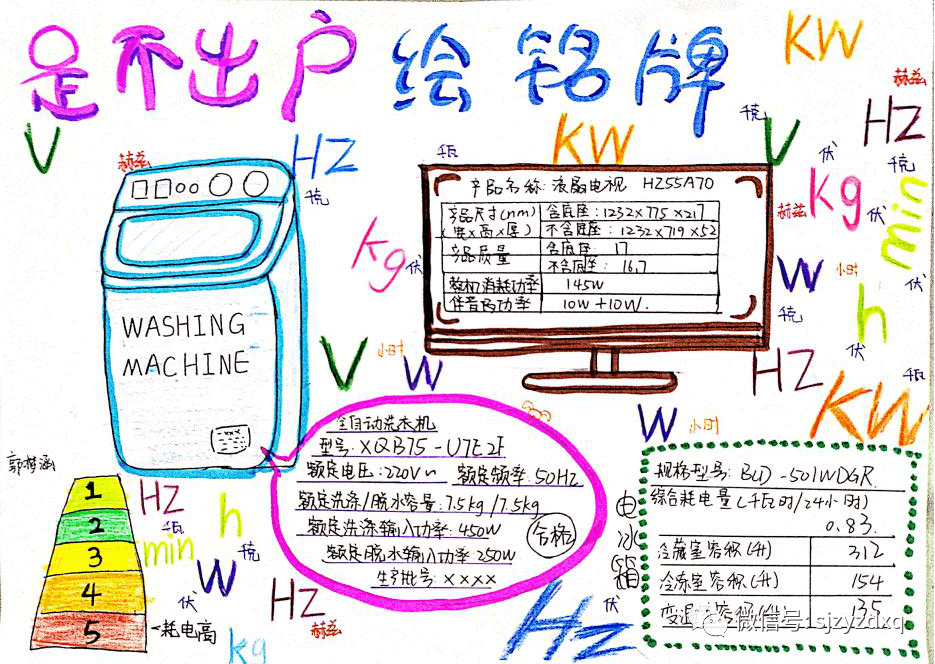 足不出户 绘铭牌
KW
赫兹
V
赫兹
HZ
千克
千瓦
KW
千克
V
伏
HZ
千克
kg
赫兹
伏
min
kg
伏
W
小时
伏
千克
h
伏
HZ
千瓦
KW
WASHING
MACHINE
产品名称:液晶电视 HZ55A70
产品尺寸(mm) 含底座:1232×775×217
(宽×高×厚) 不含底座:1232×719×52
产品质量 含底座: 17
不含底座: 16.7
整机消耗功率 145W
伴音功率 10W+10W.
V
小时
W
W
小时
全自动洗衣机
型号:XQB75-U7E2F
额定电压:220V~ 额定频率:50Hz
额定洗涤/脱水容量:7.5kg/7.5kg
额定洗涤输入功率:450W
额定脱水输入功率250W
生产批号:××××
合格
电冰箱
规格型号:BCD-501WDGR
综合耗电量(千瓦时/24小时)
0.83.
冷藏室容积(升) 312
冷冻室容积(升) 154
变温室容积(升) 135
1
2
3
4
5
耗电高
HZ
千瓦
min
h
千克
W
伏
HZ
赫兹
kg
Hz
伏
微信号:sjzyzdxq